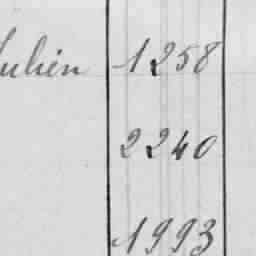 Julien 1258
2240
1993